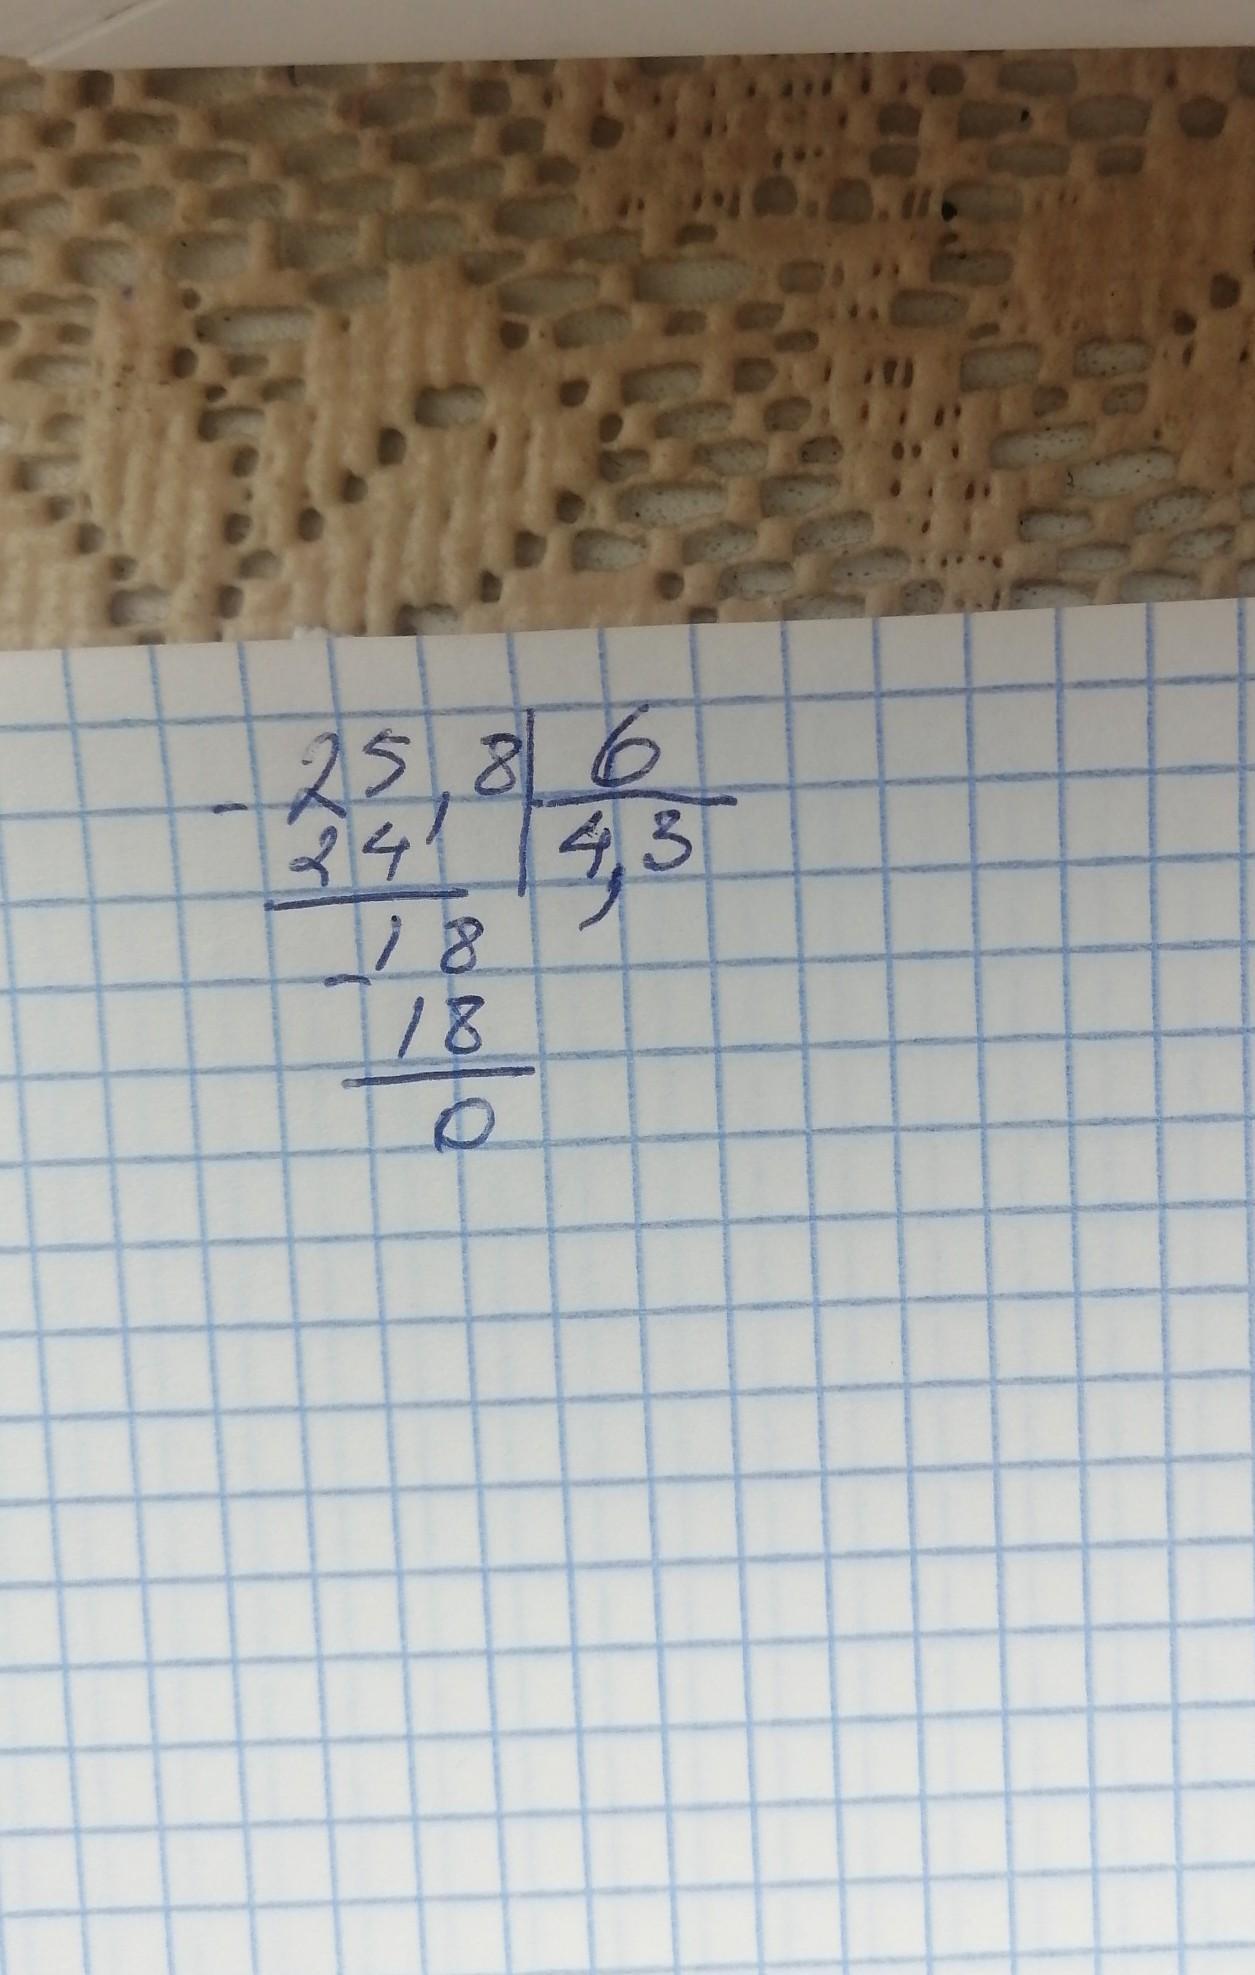 - 25,8 | 6
24 | 4,3
- 18
18
0